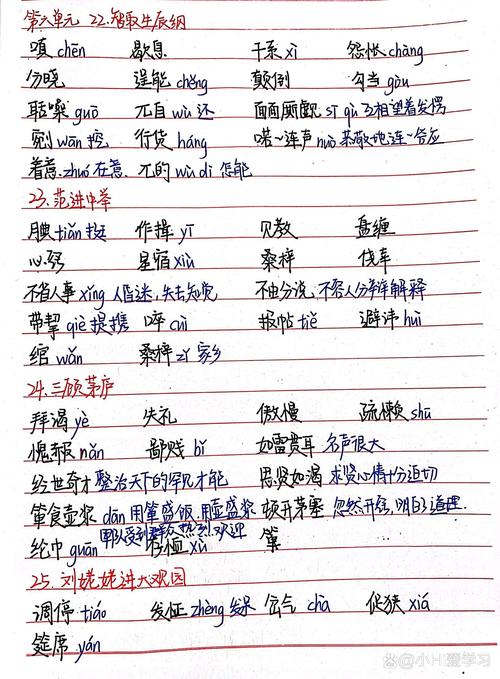 第六单元 22.智取生辰纲
嗔 chēn 歇息 干系 xì 怨怅 chàng
分晓 逞能 chěng 颠倒 勾当 gòu
聒噪 guō 兀自 wù 还 面面厮觑 sī qù 互相望着发愣
剜 wān 挖 行货 háng 喏~连声 nuò 恭敬地连~答应
着意 zhuó 在意、兀的 wù dì 怎能
23.范进中举
腆 tiǎn 挺 作揖 yī 见教 盘缠
心窍 星宿 xiù 桑梓 伐车
不省人事 xǐng 人昏迷,失去知觉 不由分说 不容人分辩解释
带挈 qiè 提携 啐 cuì 报帖 tiě 避讳 huì
绾 wǎn 桑梓 zǐ 家乡
24.三顾茅庐
拜谒 yè 失礼 傲慢 疏懒 shū
愧赧 nǎn 鄙贱 bǐ 如雷贯耳 名声很大
经世奇才 整治天下的罕见才能 思贤如渴 求贤心情十分迫切
箪食壶浆 dān 用箪盛饭,用壶盛浆 顿开茅塞 忽然开窍,明白了道理.
军队受到群众热烈欢迎
纶巾 guān 存恤 xù 箪
25.刘姥姥进大观园
调停 tiáo 发怔 zhèng 发呆 岔气 chà 促狭 xiá
筵席 yán
小H爱学习